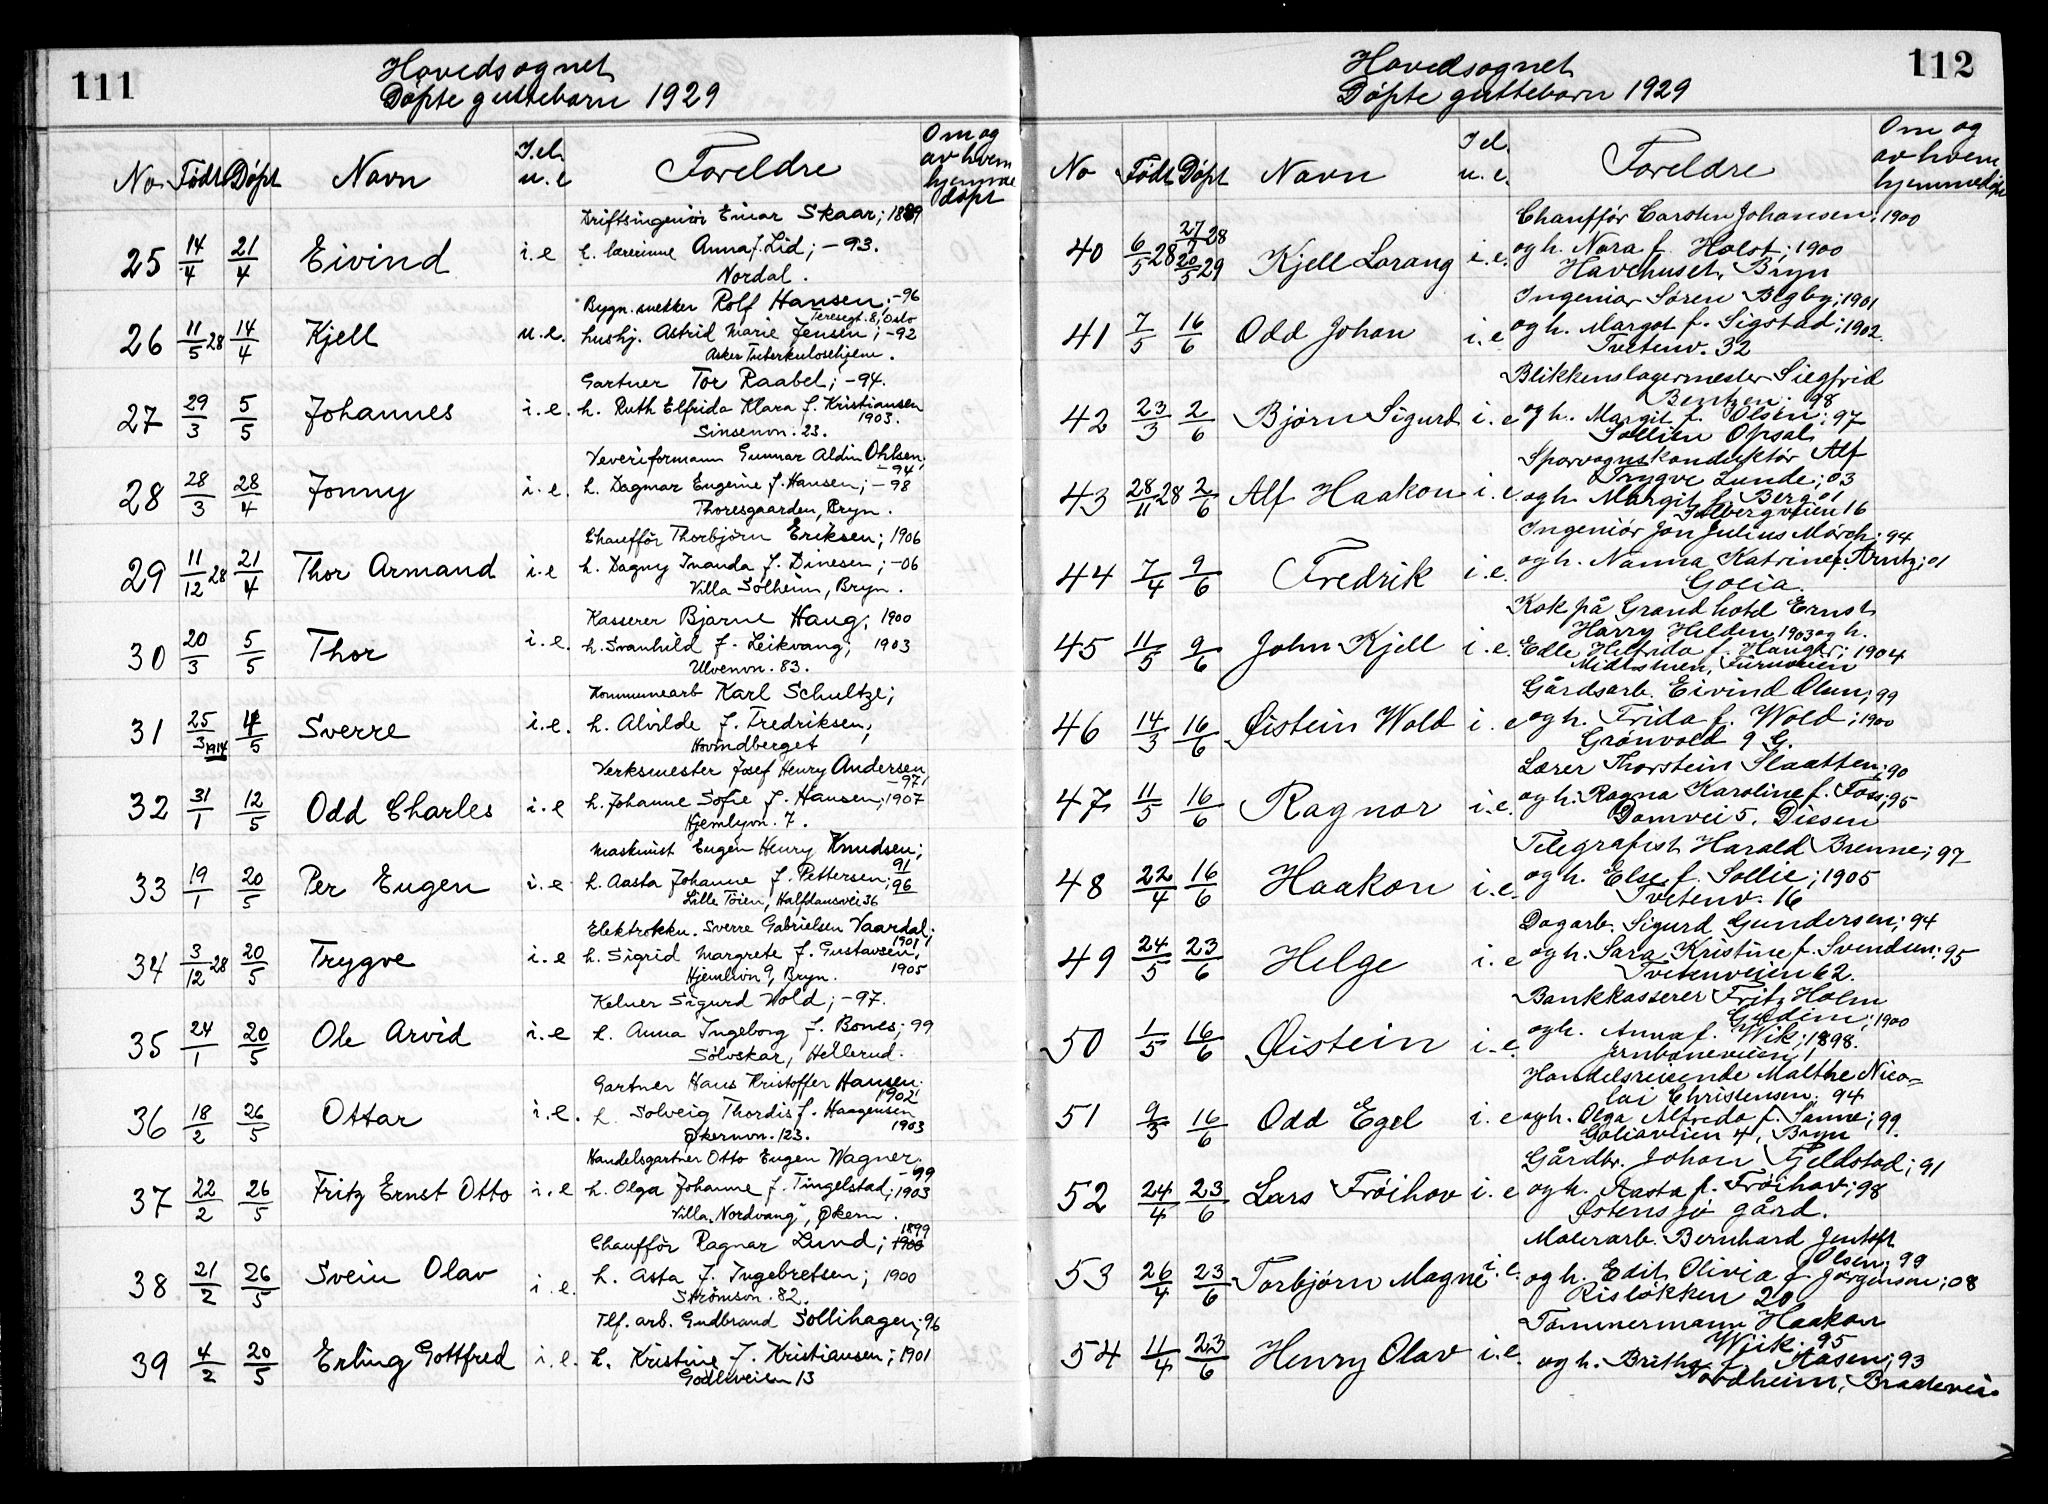 111
Hovedsognet
Døpte guttebarn 1929
No Født Døpt Navn I.el. u.e Foreldre Om og av hvem hjemmedøpt
Driftsingeniør Einar Skaar; 1889
25 14/4 21/4 Eivind i.e h. lærerinne Anna f. Lid; -93.
Nordal.
Bygn.snekker Rolf Hansen; -96
Teresegt. 8, Oslo
26 11/5 28 14/4 Kjell u.e. hushj. Astrid Marie Jensen; -92
Asker Tuberkulosehjem.
Gartner Tor Raabel; -94.
27 29/3 5/5 Johannes i.e. h. Ruth Elfrida Klara f. Kristiansen
1903.
Sinsenvn. 23.
Veveriformann Gunnar Aldin Ohlsen;
-94
28 28/3 28/4 Jonny i.e. h. Dagmar Eugenie f. Hansen; -98
Thoresgaarden, Bryn.
Chaufför Thorbjörn Eriksen; 1906
29 11/12 28 21/4 Thor Armand i.e h. Dagny Inanda f. Dinesen; -06
Villa Solheim, Bryn.
Kasserer Bjarne Haug; 1900
30 20/3 5/5 Thor i.e. h. Svanhild f. Leikvang; 1903
Ulvenvn. 83.
Kommunearb Karl Schultze;
31 25/3 1914 4/5 Sverre i.e. h. Alvilde f. Fredriksen;
Hovindberget
Verksmester Josef Henry Andersen
-97;
32 31/1 12/5 Odd Charles i.e h. Johanne Sofie f. Hansen; 1907
Hjemlyvn. 7.
Maskinist Eugen Henry Knudsen;
91
33 19/1 20/5 Per Eugen i.e. h. Aasta Johanne f. Pettersen; 96
Lille Töien, Halfdansvei 36
Elektrokku. Sverre Gabrielsen Vaardal;
1901;
34 3/12 28 20/5 Trygve i.e h. Sigrid Margrete f. Gustavsen;
1905
Hjemlivn 9, Bryn.
Kelner Sigurd Wold; -97.
35 24/1 20/5 Ole Arvid i.e h. Anna Ingeborg f. Bones; 99
Sölvskar, Hellerud.
Gartner Hans Kristoffer Hansen;
1902
36 18/2 26/5 Ottar i.e. h. Solveig Thordis f. Haagensen
1903
Økernvn. 123.
Handelsgartner Otto Eugen Wagner;
-99
37 22/2 26/5 Fritz Ernst Otto i.e h. Olga Johanne f. Tingelstad; 1903
Villa "Nordvang", Økern.
1899
Chauffør Ragnar Lund; 1900
38 21/2 26/5 Svein Olav i.e. h. Asta f. Ingebretsen; 1900
Strömsvn. 82.
Tlf. arb. Gudbrand Sollihagen; 96
39 4/2 20/5 Erling Gottfred i.e. h. Kristine f. Kristiansen; 1901
Godliveien 13
112
Hovedsognet
Døpte guttebarn 1929
No Født Døpt Navn I el. u.e. Foreldre Om og av hvem hjemmedøpt
Chauffør Carsten Johansen; 1900
40 6/5 28 27/7 28 20/5 29 Kjell Lorang i.e. og h. Nora f. Holst; 1900
Havehuset, Bryn
Ingeniør Søren Begby; 1901
41 7/5 16/6 Odd Johan i.e og h. Margot f. Sigstad; 1902.
Tvetenv. 32
Blikkenslagermester Siegfrid
Bentzen; 98
42 23/3 2/6 Bjørn Sigurd i.e og h. Margit f. Olsen; 97
Sollien Opsal
Sporvognskonduktør Alf
Trygve Lunde; 03
43 28/11 28 2/6 Alf Haakon i.e og h. Margit f. Berg 01
Solbergveien 16
Ingeniør Jon Julius Mørch; 94
44 7/4 9/6 Fredrik i.e. og h. Nanna Katrine f. Arntz; 01
Golia.
Kok på Grand hotel Ernst
Harry Helden 1903 og h.
45 11/5 9/6 John Kjell i.e. Edle Helfrida f. Hauger; 1904
Midtstuen, Furuveien
Gårdsarb. Eivind Olsen; 99
46 14/3 16/6 Øistein Wold i.e og h. Frida f. Wold; 1900
Grønvold 9 G.
Lærer Thorstein Slaatten; 90
47 11/5 16/6 Ragnar i.e. og h. Ragna Karoline f. Foss; 95
Damvei 5. Diesen
Telegrafist Harald Brenne; 97
48 22/4 16/6 Haakon i.e. og h. Else f. Sollie; 1905
Tvetenv. 16
Dagarb. Sigurd Gundersen; 94
49 24/5 23/6 Helge i.e og h. Sara Kristine f. Svendsen; 95
Tvetenveien 62.
Bankkasserer Fritz Holm
Gudim; 1900
50 1/5 16/6 Øistein i.e. og h. Anna f. Wik; 1898.
Jernbaneveien 1
Handelsreisende Malthe Nico=
lai Christensen; 94
51 9/3 16/6 Odd Egel i.e og h. Olga Alfreda f. Sanne; 99.
Goliaveien 4, Bryn
Gårdbr. Johan Fjeldstad; 91
52 24/4 23/6 Lars Frøihov i.e og h. Aasta f. Frøihov; 98
Østensjø gård.
Malerarb. Bernhard Jentoft
Olsen; 99
53 26/4 23/6 Torbjørn Magne i.e. og h. Edit Olivia f. Jørgensen; 08
Risløkken 20
Tømmermann Haakon
Wiik; 95
54 11/4 23/6 Henry Olav i.e. og h. Brithe f. Aasen; 93
Nordheim, Bradevei